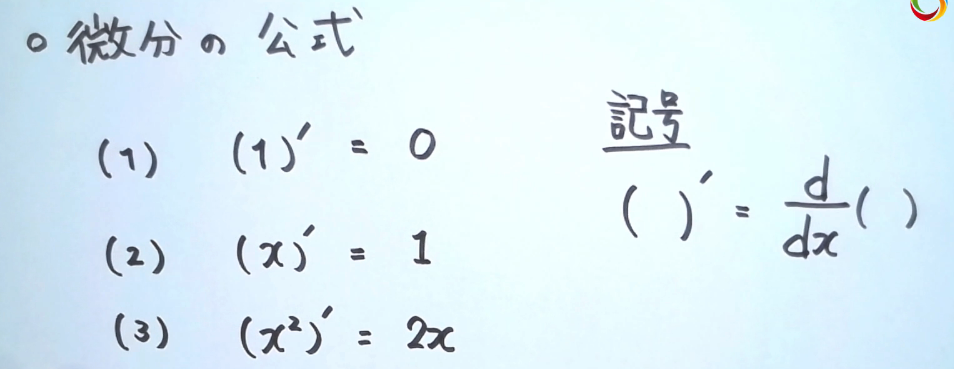 ○ 微分の公式
(1) (1)′ = 0
(2) (x)′ = 1
(3) (x²)′ = 2x
記号
( )′ = d/dx ( )